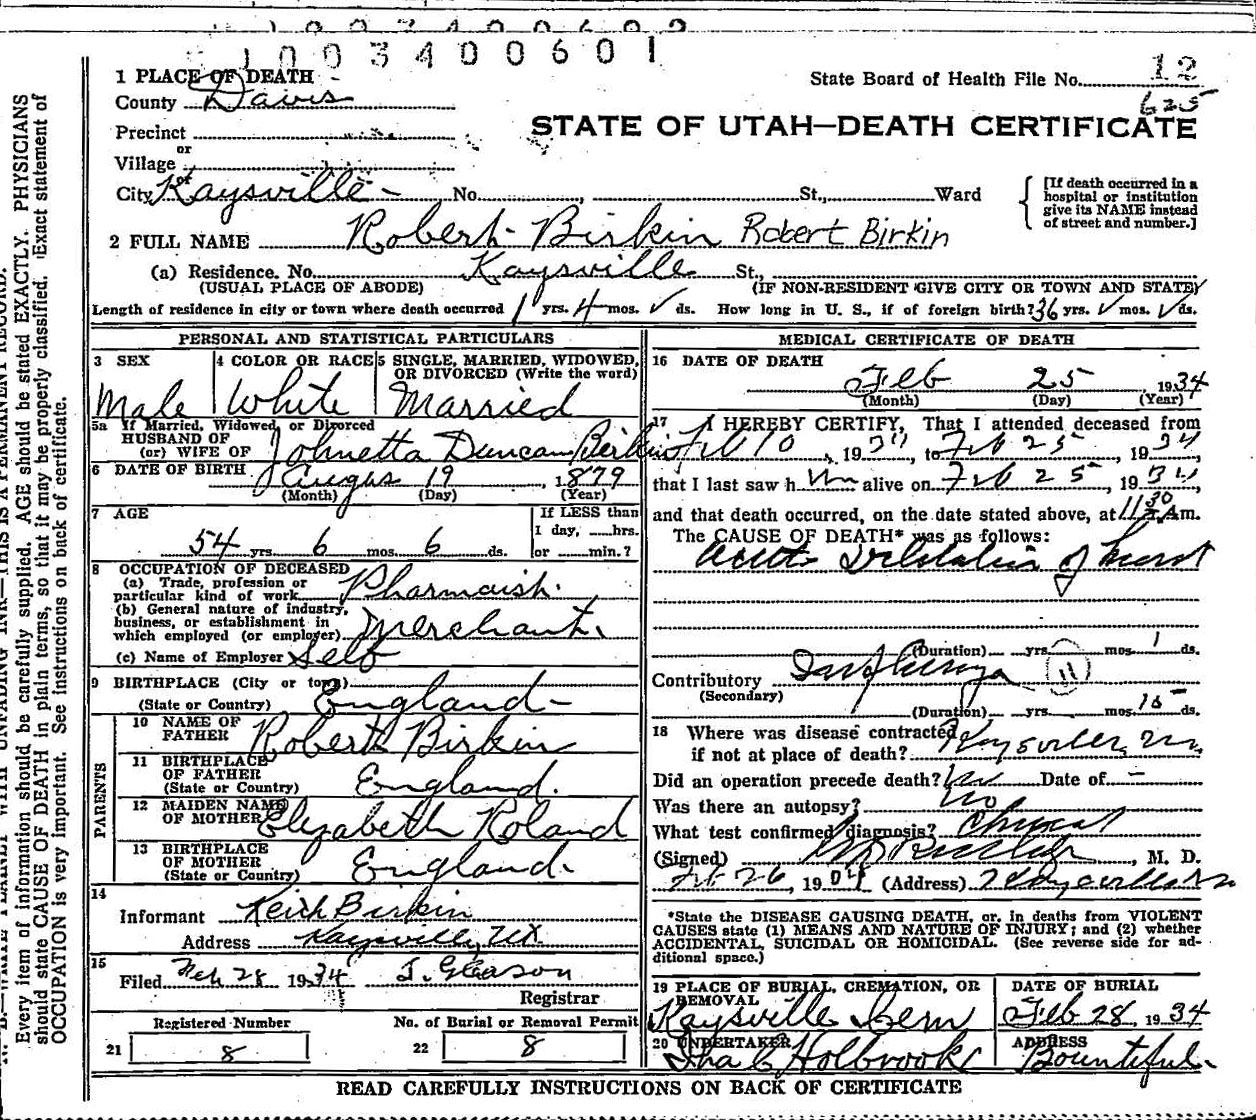 1003400601
1 PLACE OF DEATH
State Board of Health File No. 12
County Davis
625
Precinct
STATE OF UTAH—DEATH CERTIFICATE
or
Village
City Kaysville No. St., Ward
[If death occurred in a hospital or institution give its NAME instead of street and number.]
2 FULL NAME Robert Birkin Robert Birkin
(a) Residence. No. Kaysville St.,
(USUAL PLACE OF ABODE) (IF NON-RESIDENT GIVE CITY OR TOWN AND STATE)
Length of residence in city or town where death occurred 1 yrs. 4 mos. ✓ ds. How long in U. S., if of foreign birth? 36 yrs. ✓ mos. ✓ ds.
PERSONAL AND STATISTICAL PARTICULARS
3 SEX
Male
4 COLOR OR RACE
White
5 SINGLE, MARRIED, WIDOWED, OR DIVORCED (Write the word)
Married
5a If Married, Widowed, or Divorced
HUSBAND OF
(or) WIFE OF Johnetta Duncan Birkin
6 DATE OF BIRTH Augus 19, 1879
(Month) (Day) (Year)
7 AGE
54 yrs. 6 mos. 6 ds.
If LESS than
1 day, hrs.
or min.?
8 OCCUPATION OF DECEASED
(a) Trade, profession or
particular kind of work Pharmasist.
(b) General nature of industry,
business, or establishment in
which employed (or employer) Merchant.
(c) Name of Employer Self
9 BIRTHPLACE (City or town)
(State or Country) England-
PARENTS
10 NAME OF
FATHER Robert Birkin
11 BIRTHPLACE
OF FATHER
(State or Country) England.
12 MAIDEN NAME
OF MOTHER Elizabeth Roland
13 BIRTHPLACE
OF MOTHER
(State or Country) England.
14
Informant Keith Birkin
Address Kaysville, Ut
15
Filed Feb 28 1934 J. Gleason
Registrar
Registered Number
21 8
No. of Burial or Removal Permit
22 8
MEDICAL CERTIFICATE OF DEATH
16 DATE OF DEATH
Feb 25, 1934
(Month) (Day) (Year)
17 I HEREBY CERTIFY, That I attended deceased from
Feb 10, 1934, to Feb 25, 1934,
that I last saw him alive on Feb 25, 1934,
and that death occurred, on the date stated above, at 11:30 Am.
The CAUSE OF DEATH* was as follows:
Acute Dilatation of heart
(Duration) yrs. mos. 1 ds.
Contributory Influenza 11
(Secondary)
(Duration) yrs. mos. 15 ds.
18 Where was disease contracted
if not at place of death? Kaysville,
Did an operation precede death? no Date of -
Was there an autopsy? no
What test confirmed diagnosis?
(Signed) , M. D.
Feb 26, 1934 (Address) Kaysville
*State the DISEASE CAUSING DEATH, or, in deaths from VIOLENT
CAUSES state (1) MEANS AND NATURE OF INJURY; and (2) whether
ACCIDENTAL, SUICIDAL OR HOMICIDAL. (See reverse side for ad-
ditional space.)
19 PLACE OF BURIAL, CREMATION, OR
REMOVAL
Kaysville Cem
DATE OF BURIAL
Feb 28, 1934
20 UNDERTAKER
Holbrook
ADDRESS
Bountiful.
READ CAREFULLY INSTRUCTIONS ON BACK OF CERTIFICATE
Every item of information should be carefully supplied. AGE should be stated EXACTLY. PHYSICIANS
should state CAUSE OF DEATH in plain terms, so that it may be properly classified. Exact statement of
OCCUPATION is very important. See instructions on back of certificate.